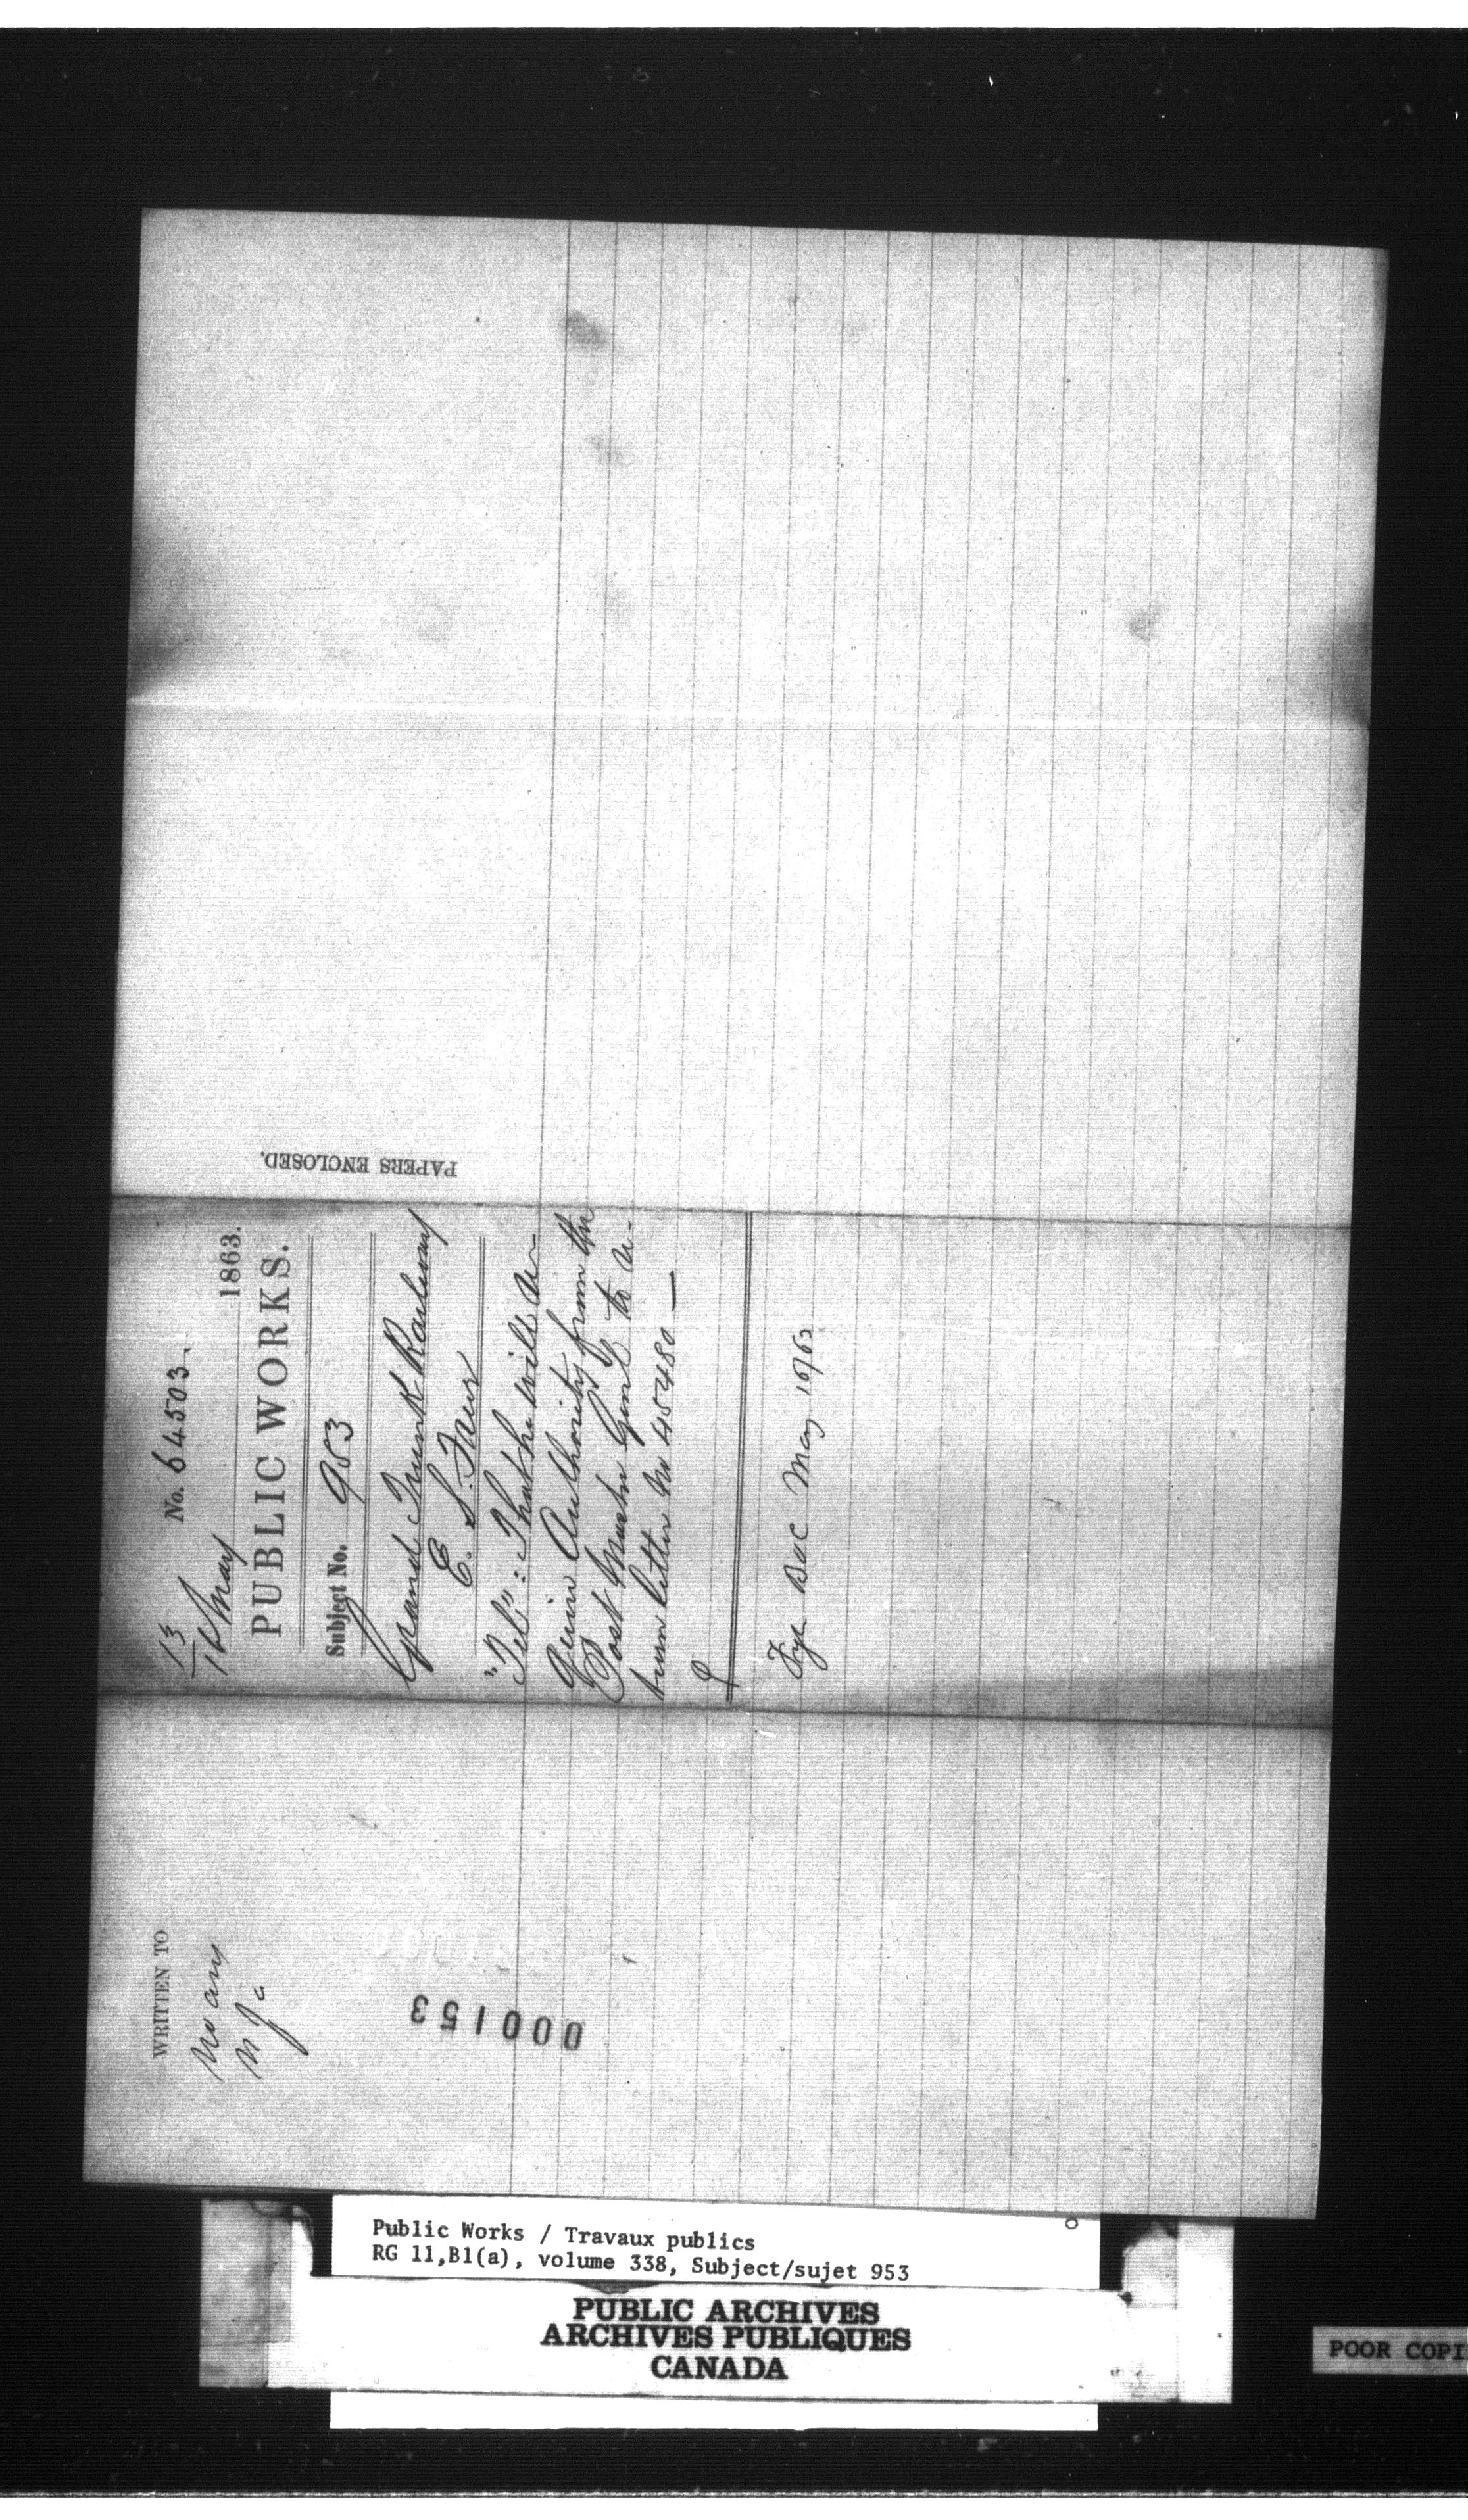 13
No. 64503.
12 May 1863.
PUBLIC WORKS.
Subject No. 953
Grand Trunk Railway
E. S.
"Tel": That he will re-
quire Authority from the
Post Master Genl to re-
turn letter No 45480 —
May 1863
PAPERS ENCLOSED.
WRITTEN TO
No ans
000153
Public Works / Travaux publics
RG 11,B1(a), volume 338, Subject/sujet 953
PUBLIC ARCHIVES
ARCHIVES PUBLIQUES
CANADA
POOR COPI